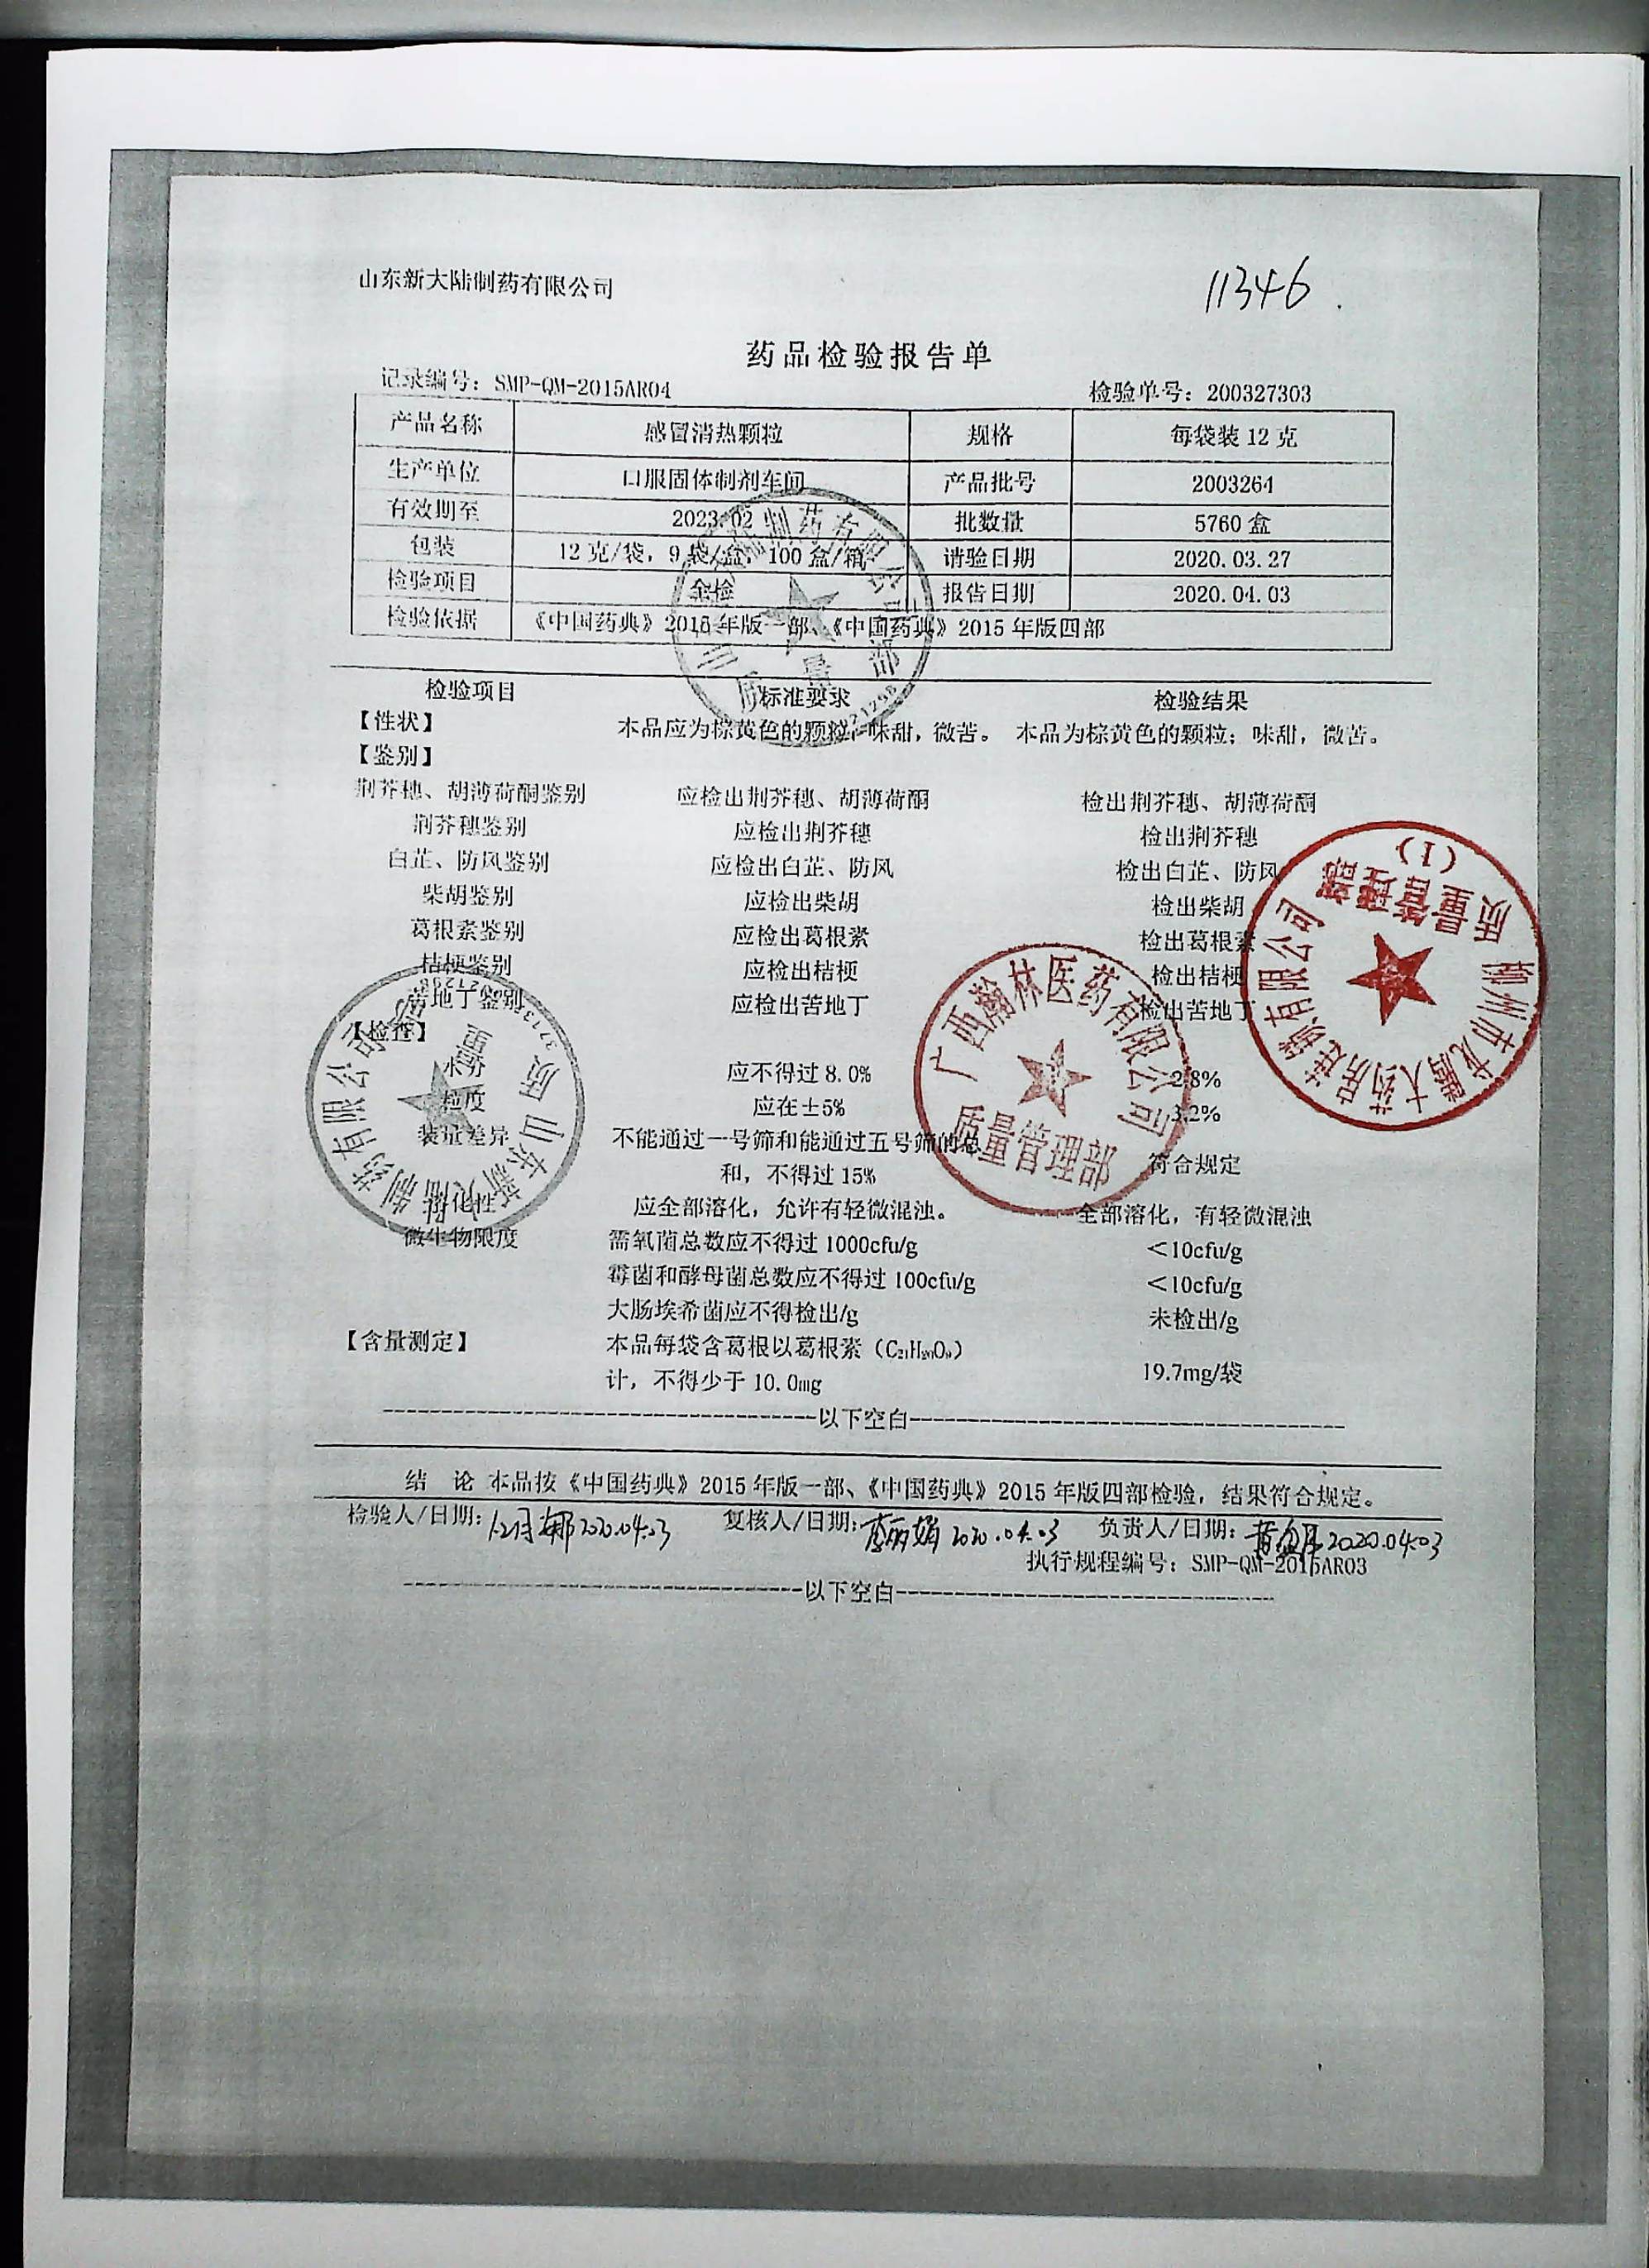 山东新大陆制药有限公司
11346
药品检验报告单
记录编号：SMP-QM-2015AR04 检验单号：200327303
产品名称 感冒清热颗粒 规格 每袋装12克
生产单位 口服固体制剂车间 产品批号 2003264
有效期至 2023.02 批数量 5760盒
包装 12克/袋，9袋/盒，100盒/箱 请验日期 2020.03.27
检验项目 全检 报告日期 2020.04.03
检验依据 《中国药典》2015年版一部、《中国药典》2015年版四部
检验项目 标准要求 检验结果
【性状】 本品应为棕黄色的颗粒；味甜，微苦。 本品为棕黄色的颗粒；味甜，微苦。
【鉴别】
荆芥穗、胡薄荷酮鉴别 应检出荆芥穗、胡薄荷酮 检出荆芥穗、胡薄荷酮
荆芥穗鉴别 应检出荆芥穗 检出荆芥穗
白芷、防风鉴别 应检出白芷、防风 检出白芷、防风
柴胡鉴别 应检出柴胡 检出柴胡
葛根素鉴别 应检出葛根素 检出葛根素
桔梗鉴别 应检出桔梗 检出桔梗
苦地丁鉴别 应检出苦地丁 检出苦地丁
【检查】
水分 应不得过8.0% 2.8%
粒度 应在±5% 3.2%
装量差异 不能通过一号筛和能通过五号筛的总
和，不得过15% 符合规定
溶化性 应全部溶化，允许有轻微混浊。 全部溶化，有轻微混浊
微生物限度 需氧菌总数应不得过1000cfu/g ＜10cfu/g
霉菌和酵母菌总数应不得过100cfu/g ＜10cfu/g
大肠埃希菌应不得检出/g 未检出/g
【含量测定】 本品每袋含葛根以葛根素（C₂₁H₂₀O₉）
计，不得少于10.0mg 19.7mg/袋
以下空白
结 论 本品按《中国药典》2015年版一部、《中国药典》2015年版四部检验，结果符合规定。
检验人/日期： 2020.04.03 复核人/日期：李丽娟 2020.04.03 负责人/日期： 2020.04.03
执行规程编号：SMP-QM-2015AR03
以下空白
广西瀚林医药有限公司
质量管理部
柳州市龙腾大药房连锁有限公司
质量管理部
(1)
山东新大陆制药有限公司
质量部